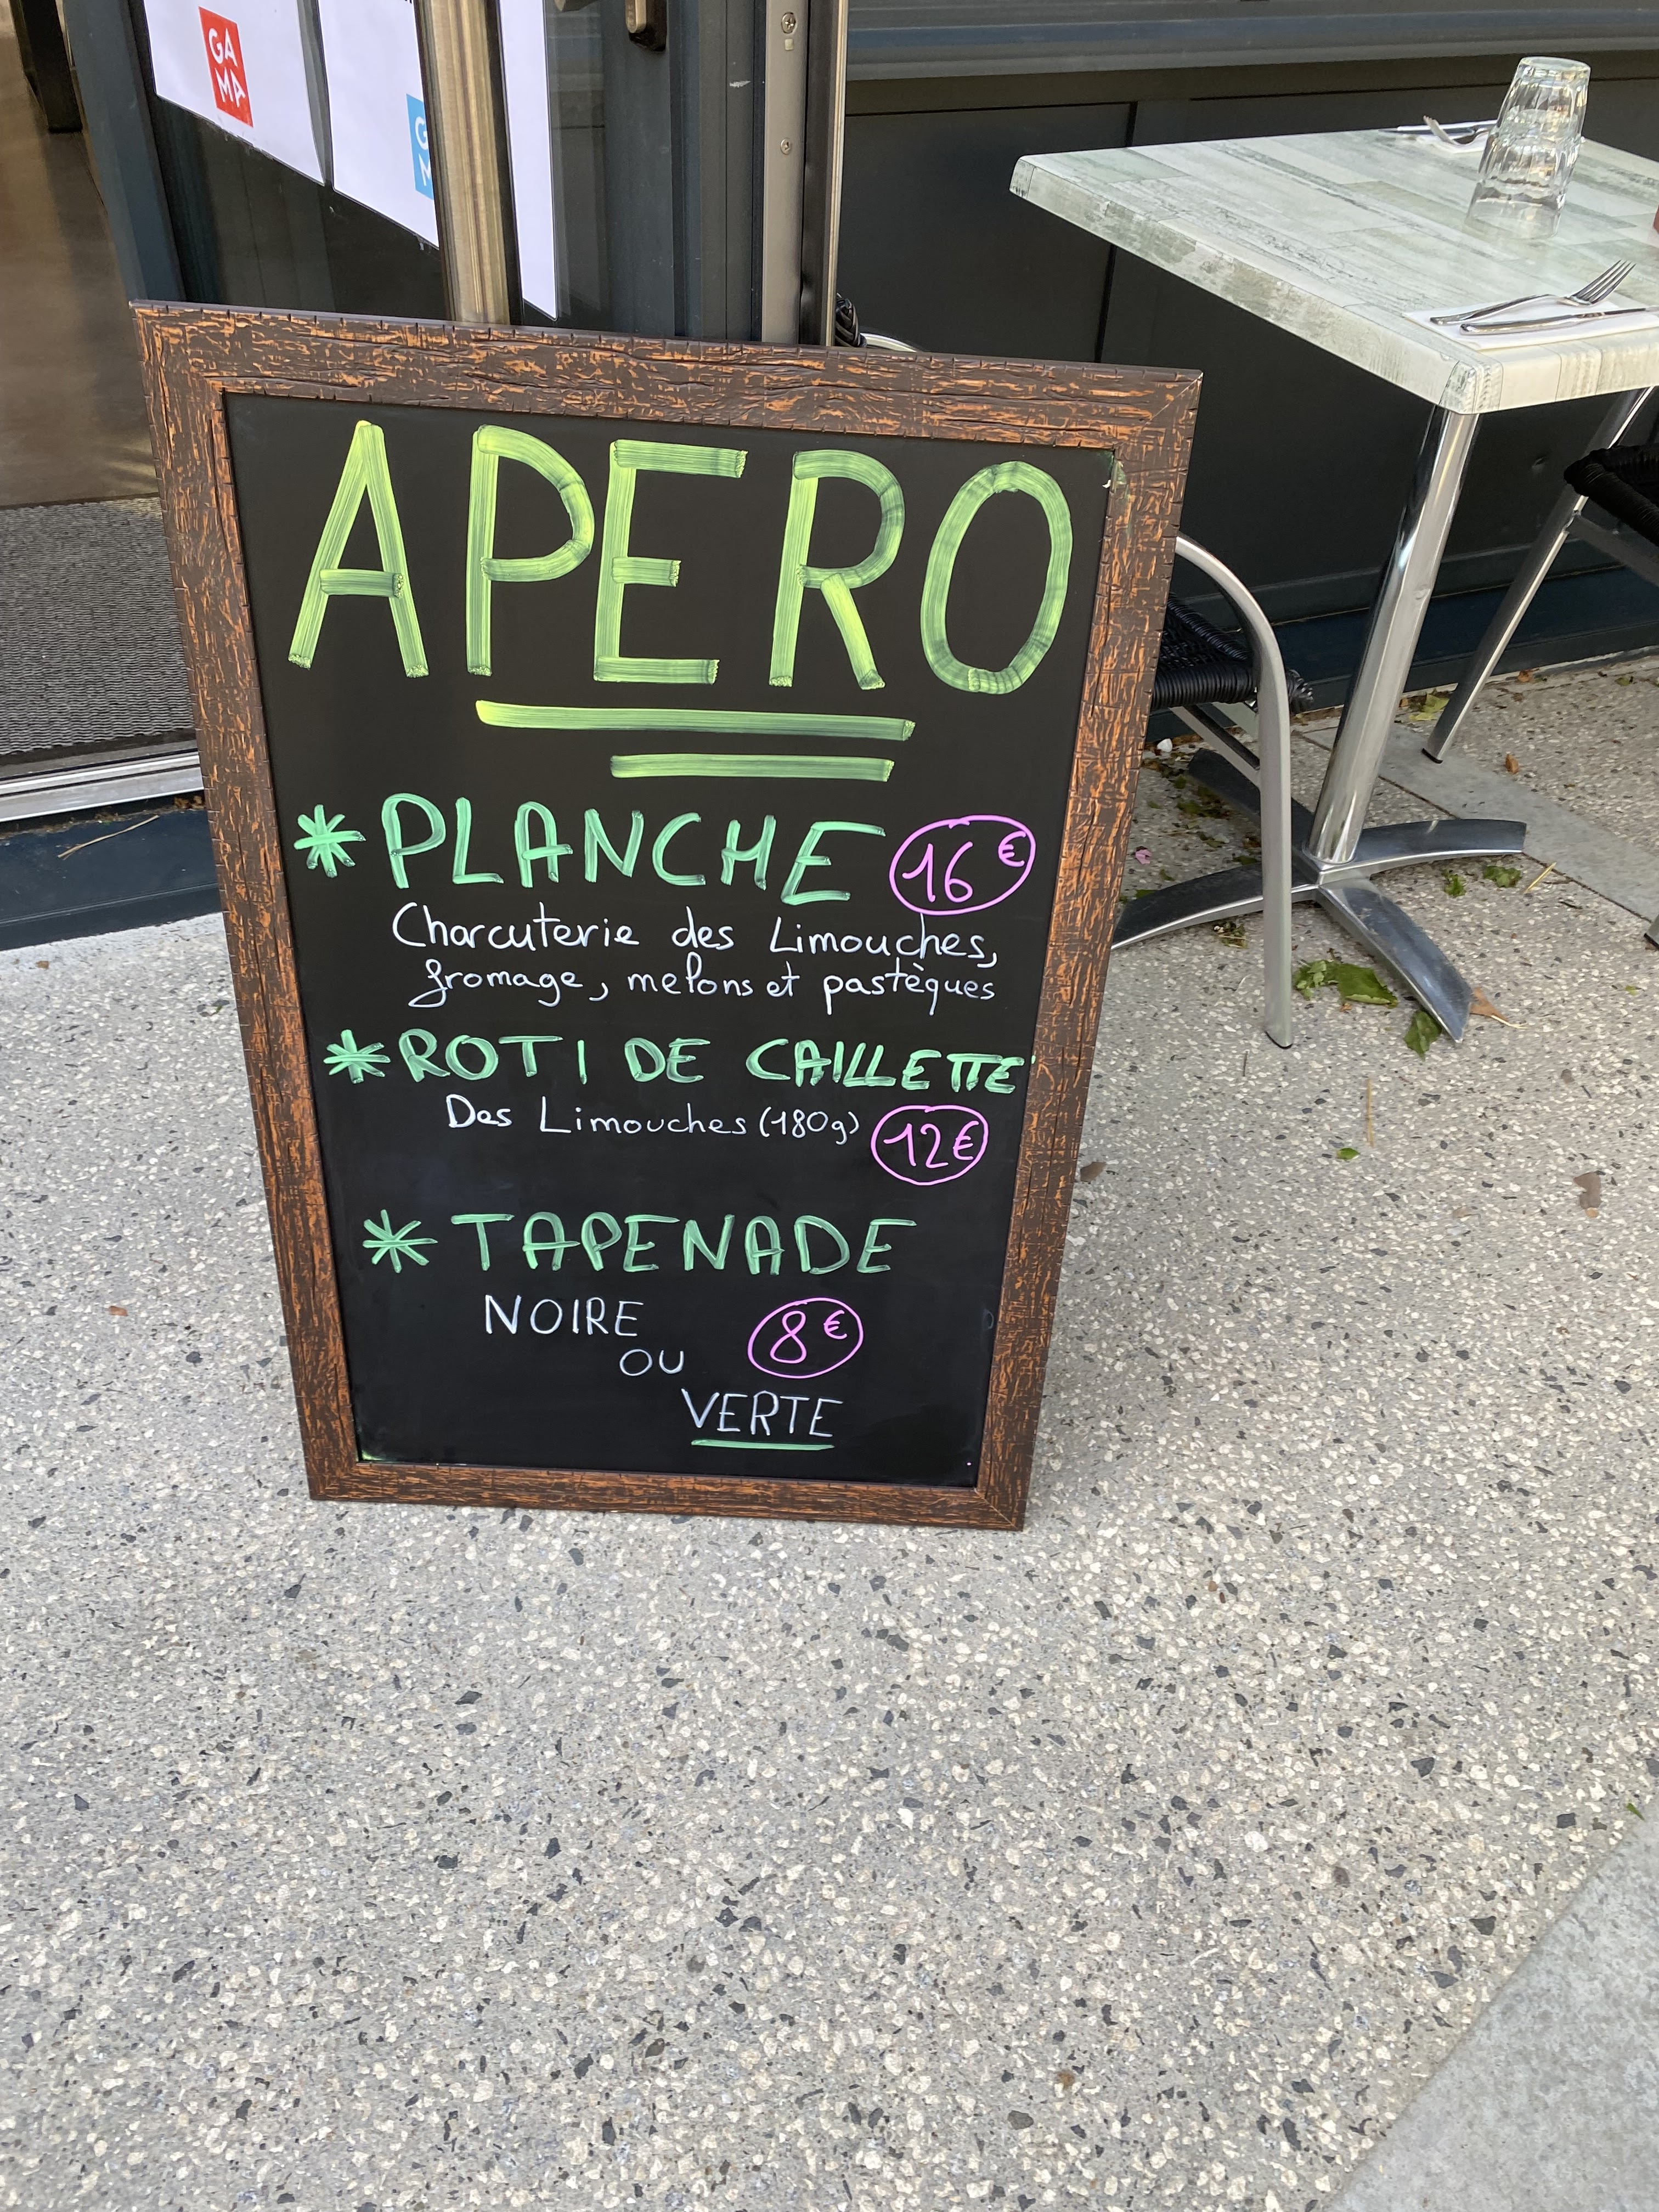 GA
MA
APERO
* PLANCHE 16€
Charcuterie des Limouches,
fromage, melons et pastèques
* ROTI DE CAILLETTE
Des Limouches (180g) 12€
* TAPENADE
NOIRE 8€
OU
VERTE